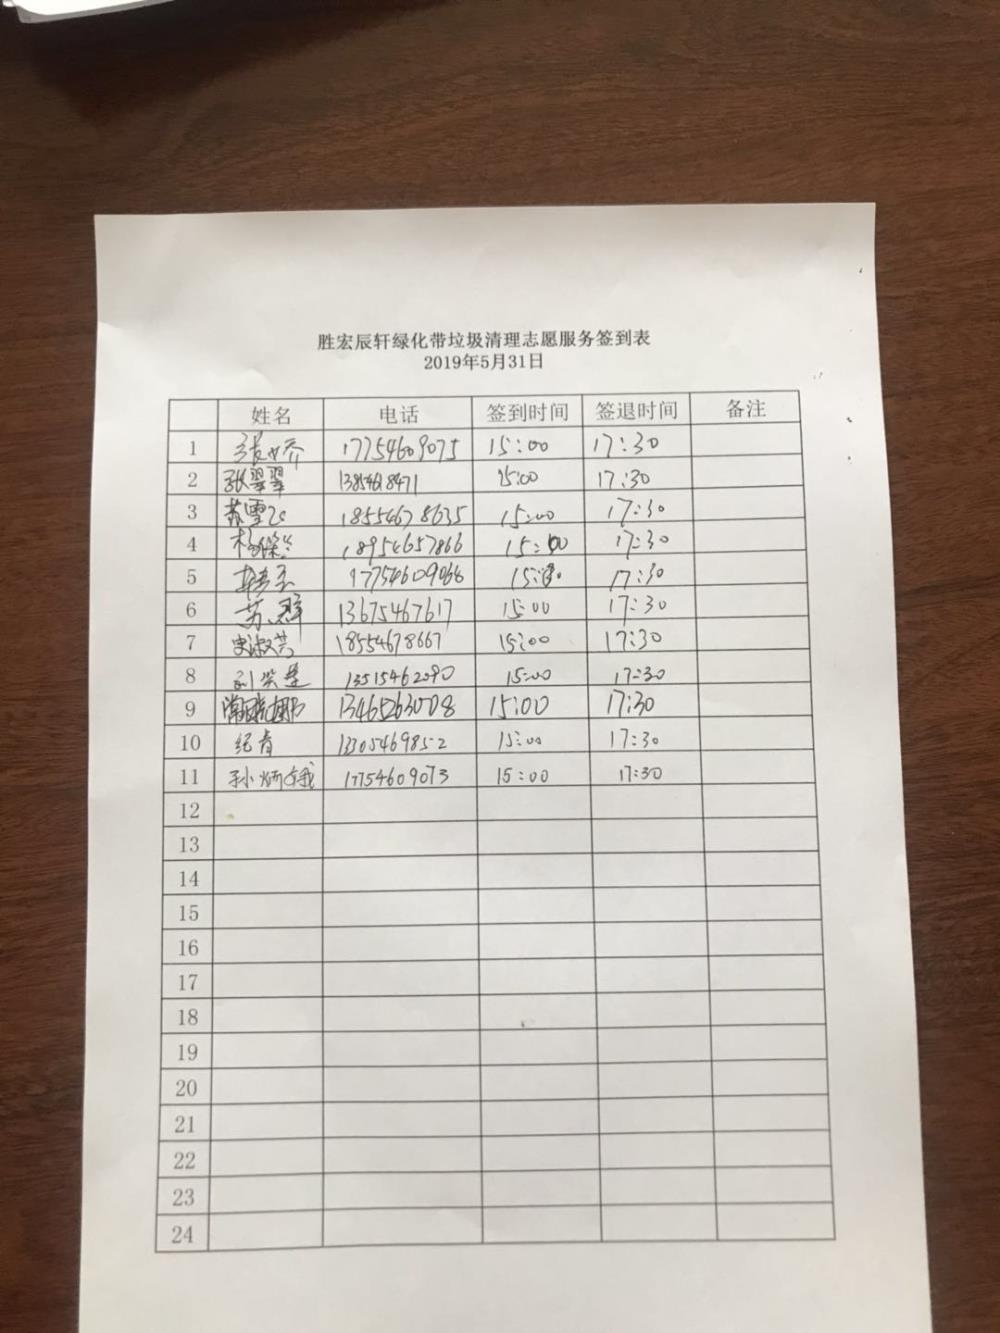 胜宏辰轩绿化带垃圾清理志愿服务签到表
2019年5月31日
姓名 电话 签到时间 签退时间 备注
1 17754609075 15:00 17:30
2 张翠翠 15:00 17:30
3 18554678635 15:00 17:30
4 18954657866 15:00 17:30
5 15:00 17:30
6 苏群 13675467617 15:00 17:30
7 史淑芳 18554678667 15:00 17:30
8 刘笑莲 13515462090 15:00 17:30
9 13465263008 15:00 17:30
10 纪青 13305469852 15:00 17:30
11 孙炳娥 17754609073 15:00 17:30
12
13
14
15
16
17
18
19
20
21
22
23
24